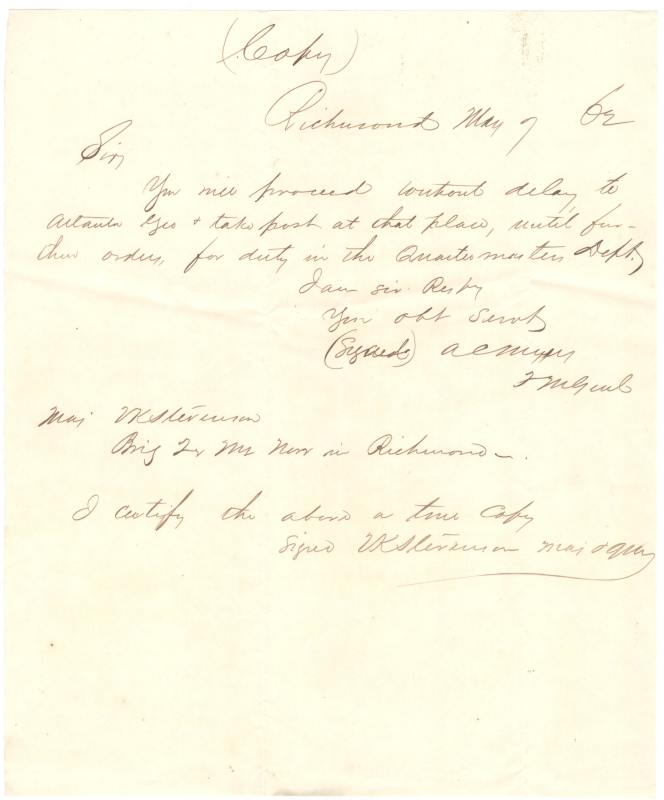 (Copy)
Richmond May 7 62
Sir,
You will proceed without delay, to
Atlanta Geo & take post at that place, until fur-
ther orders, for duty in the Quartermasters Dept.
I am sir Resty
Your obt Servt
(Signed) A C Myers
2 M Genl
Maj VK Stevenson
Brig Qr Mr Now in Richmond -.
I certify the above a true Copy
Signed VK Stevenson Maj & QM